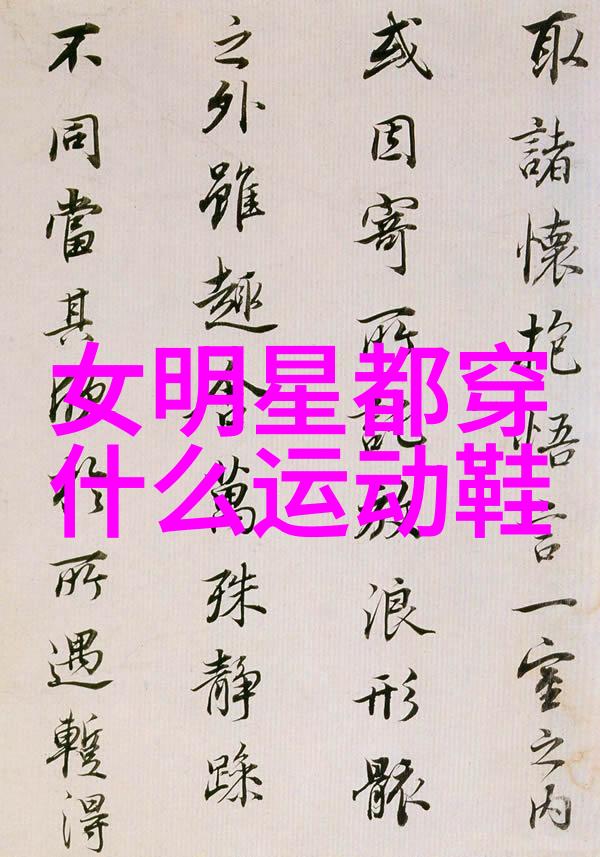 取諸懷抱悟言一室之内
或因寄所託放浪形骸
之外雖趣舍萬殊靜躁
不同當其欣於所遇蹔得
女明星都穿
什么运动鞋